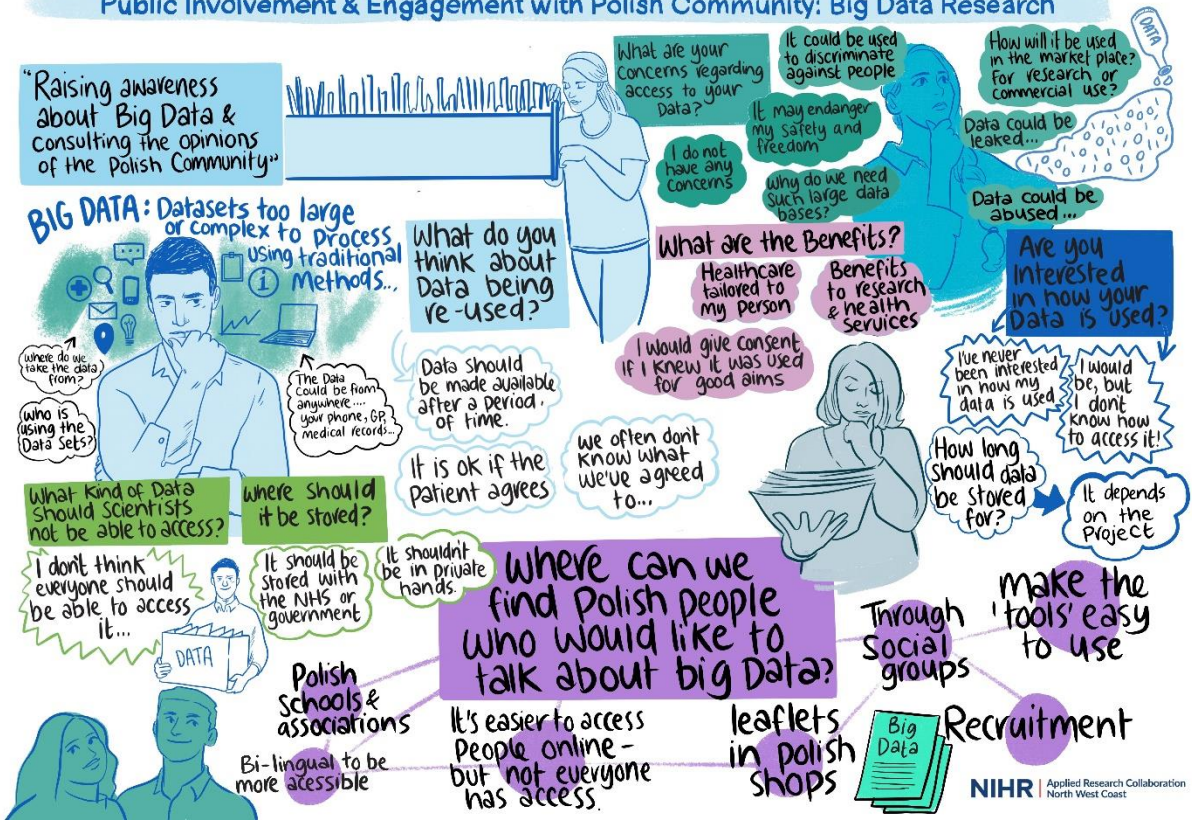 Public Involvement & Engagement with Polish Community: Big Data Research
"Raising awareness
about Big Data &
consulting the opinions
of the Polish Community"
BIG DATA: Datasets too large
or complex to Process
using traditional
Methods...
where do we
take the data
from?
who is
using the
Data Sets?
The Data
could be from
anywhere....
your phone, GP,
medical records...
What do you
think about
Data being
re-used?
Data should
be made available
after a period
of time.
It is ok if the
Patient agrees
we often don't
know what
we've agreed
to...
What are your
concerns regarding
access to your
Data?
It could be used
to discriminate
against people
It may endanger
my safety and
freedom
I do not
have any
concerns
why do we need
such large data
bases?
How will it be used
in the market place?
For research or
commercial use?
DATA
Data could be
leaked...
Data could be
abused...
What are the Benefits?
Healthcare
tailored to
my person
Benefits
to research
& health
services
I would give consent
if I knew it was used
for good aims
Are you
Interested
in how your
Data is used?
I've never
been interested
in how my
data is used
I would
be, but
I don't
know how
to access it!
How long
should data
be stored
for?
It depends
on the
Project
What Kind of Data
should scientists
not be able to access?
I don't think
everyone should
be able to access
it...
DATA
where should
it be stored?
It should be
stored with
the NHS or
government
It shouldn't
be in private
hands.
where can we
find Polish people
who would like to
talk about big Data?
Polish
Schools &
associations
Bi-lingual to be
more acessible
It's easier to access
People online -
but not everyone
has access.
leaflets
in polish
shops
Through
Social
groups
make the
'tools' easy
to use
Recruitment
Big
Data
NIHR | Applied Research Collaboration
North West Coast